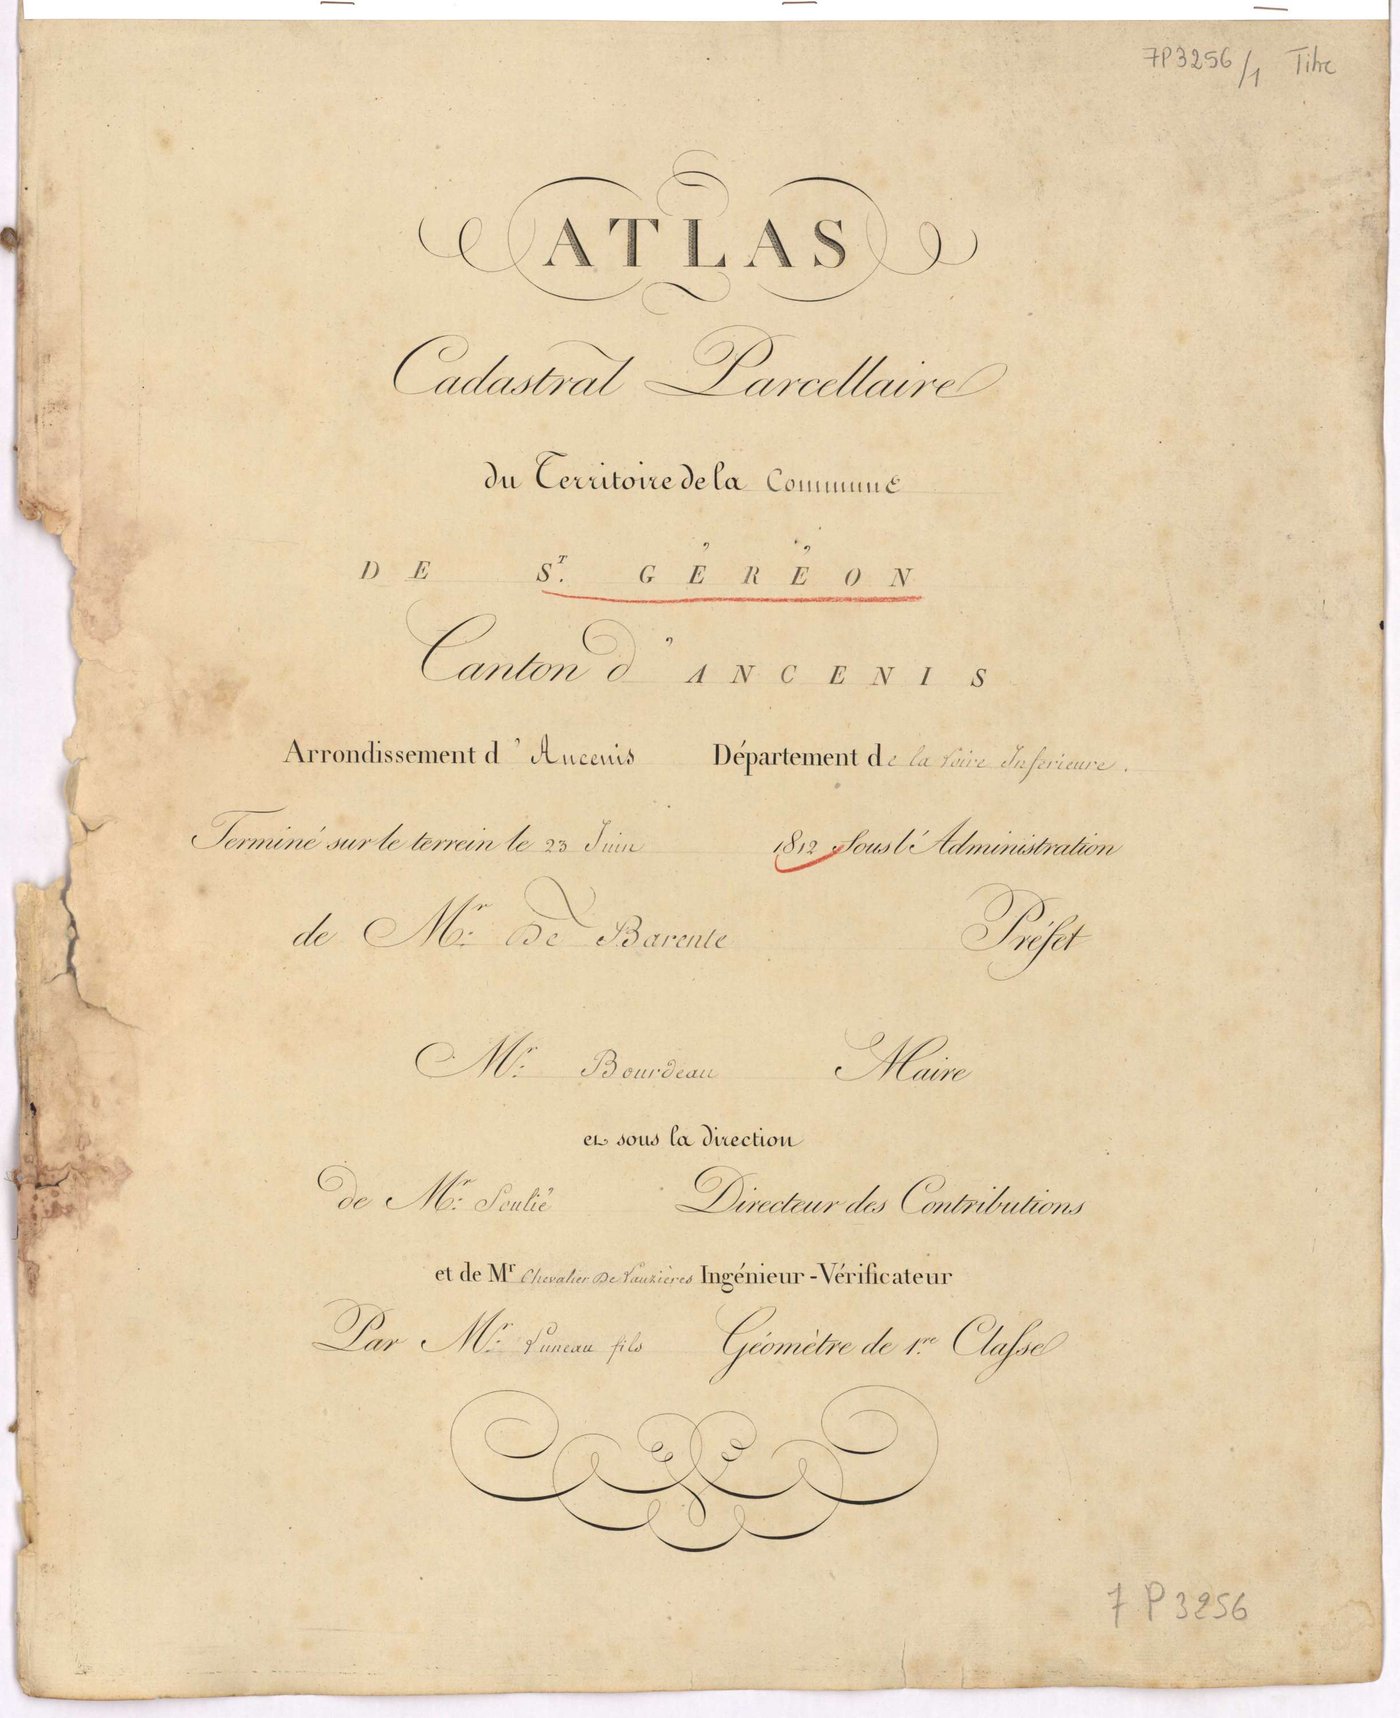 7P3256/1 Titre
ATLAS
Cadastral Parcellaire
du Territoire de la Commune
DE ST. GÉRÉON
Canton d'ANCENIS
Arrondissement d'Ancenis Département de la Loire Inférieure.
Terminé sur le terrein le 23 Juin 1812 Sous l'Administration
de Mr. De Barente Préfet
Mr. Bourdeau Maire
et sous la direction
de Mr. Soulié Directeur des Contributions
et de Mr Chevalier De Lauzières Ingénieur-Vérificateur
Par Mr. Luneau fils Géomètre de 1.re Classe
7 P 3256